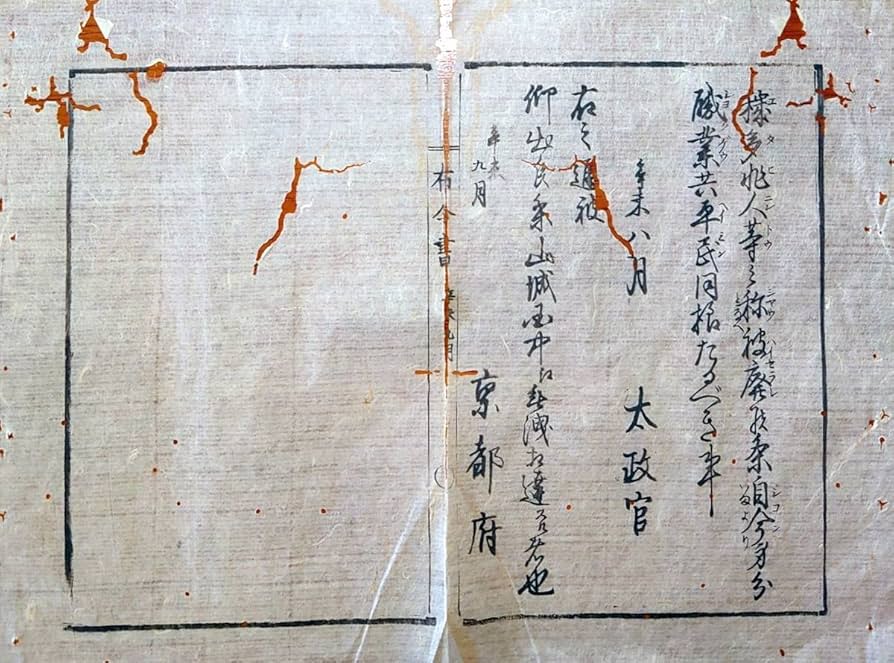 穢多非人等之称被廃候条自今身分
職業共平民同様たるべき事
辛未八月　太政官
右之通被
仰出候条山城国中江無洩相達者也
辛未九月　京都府
布令書　辛未九月